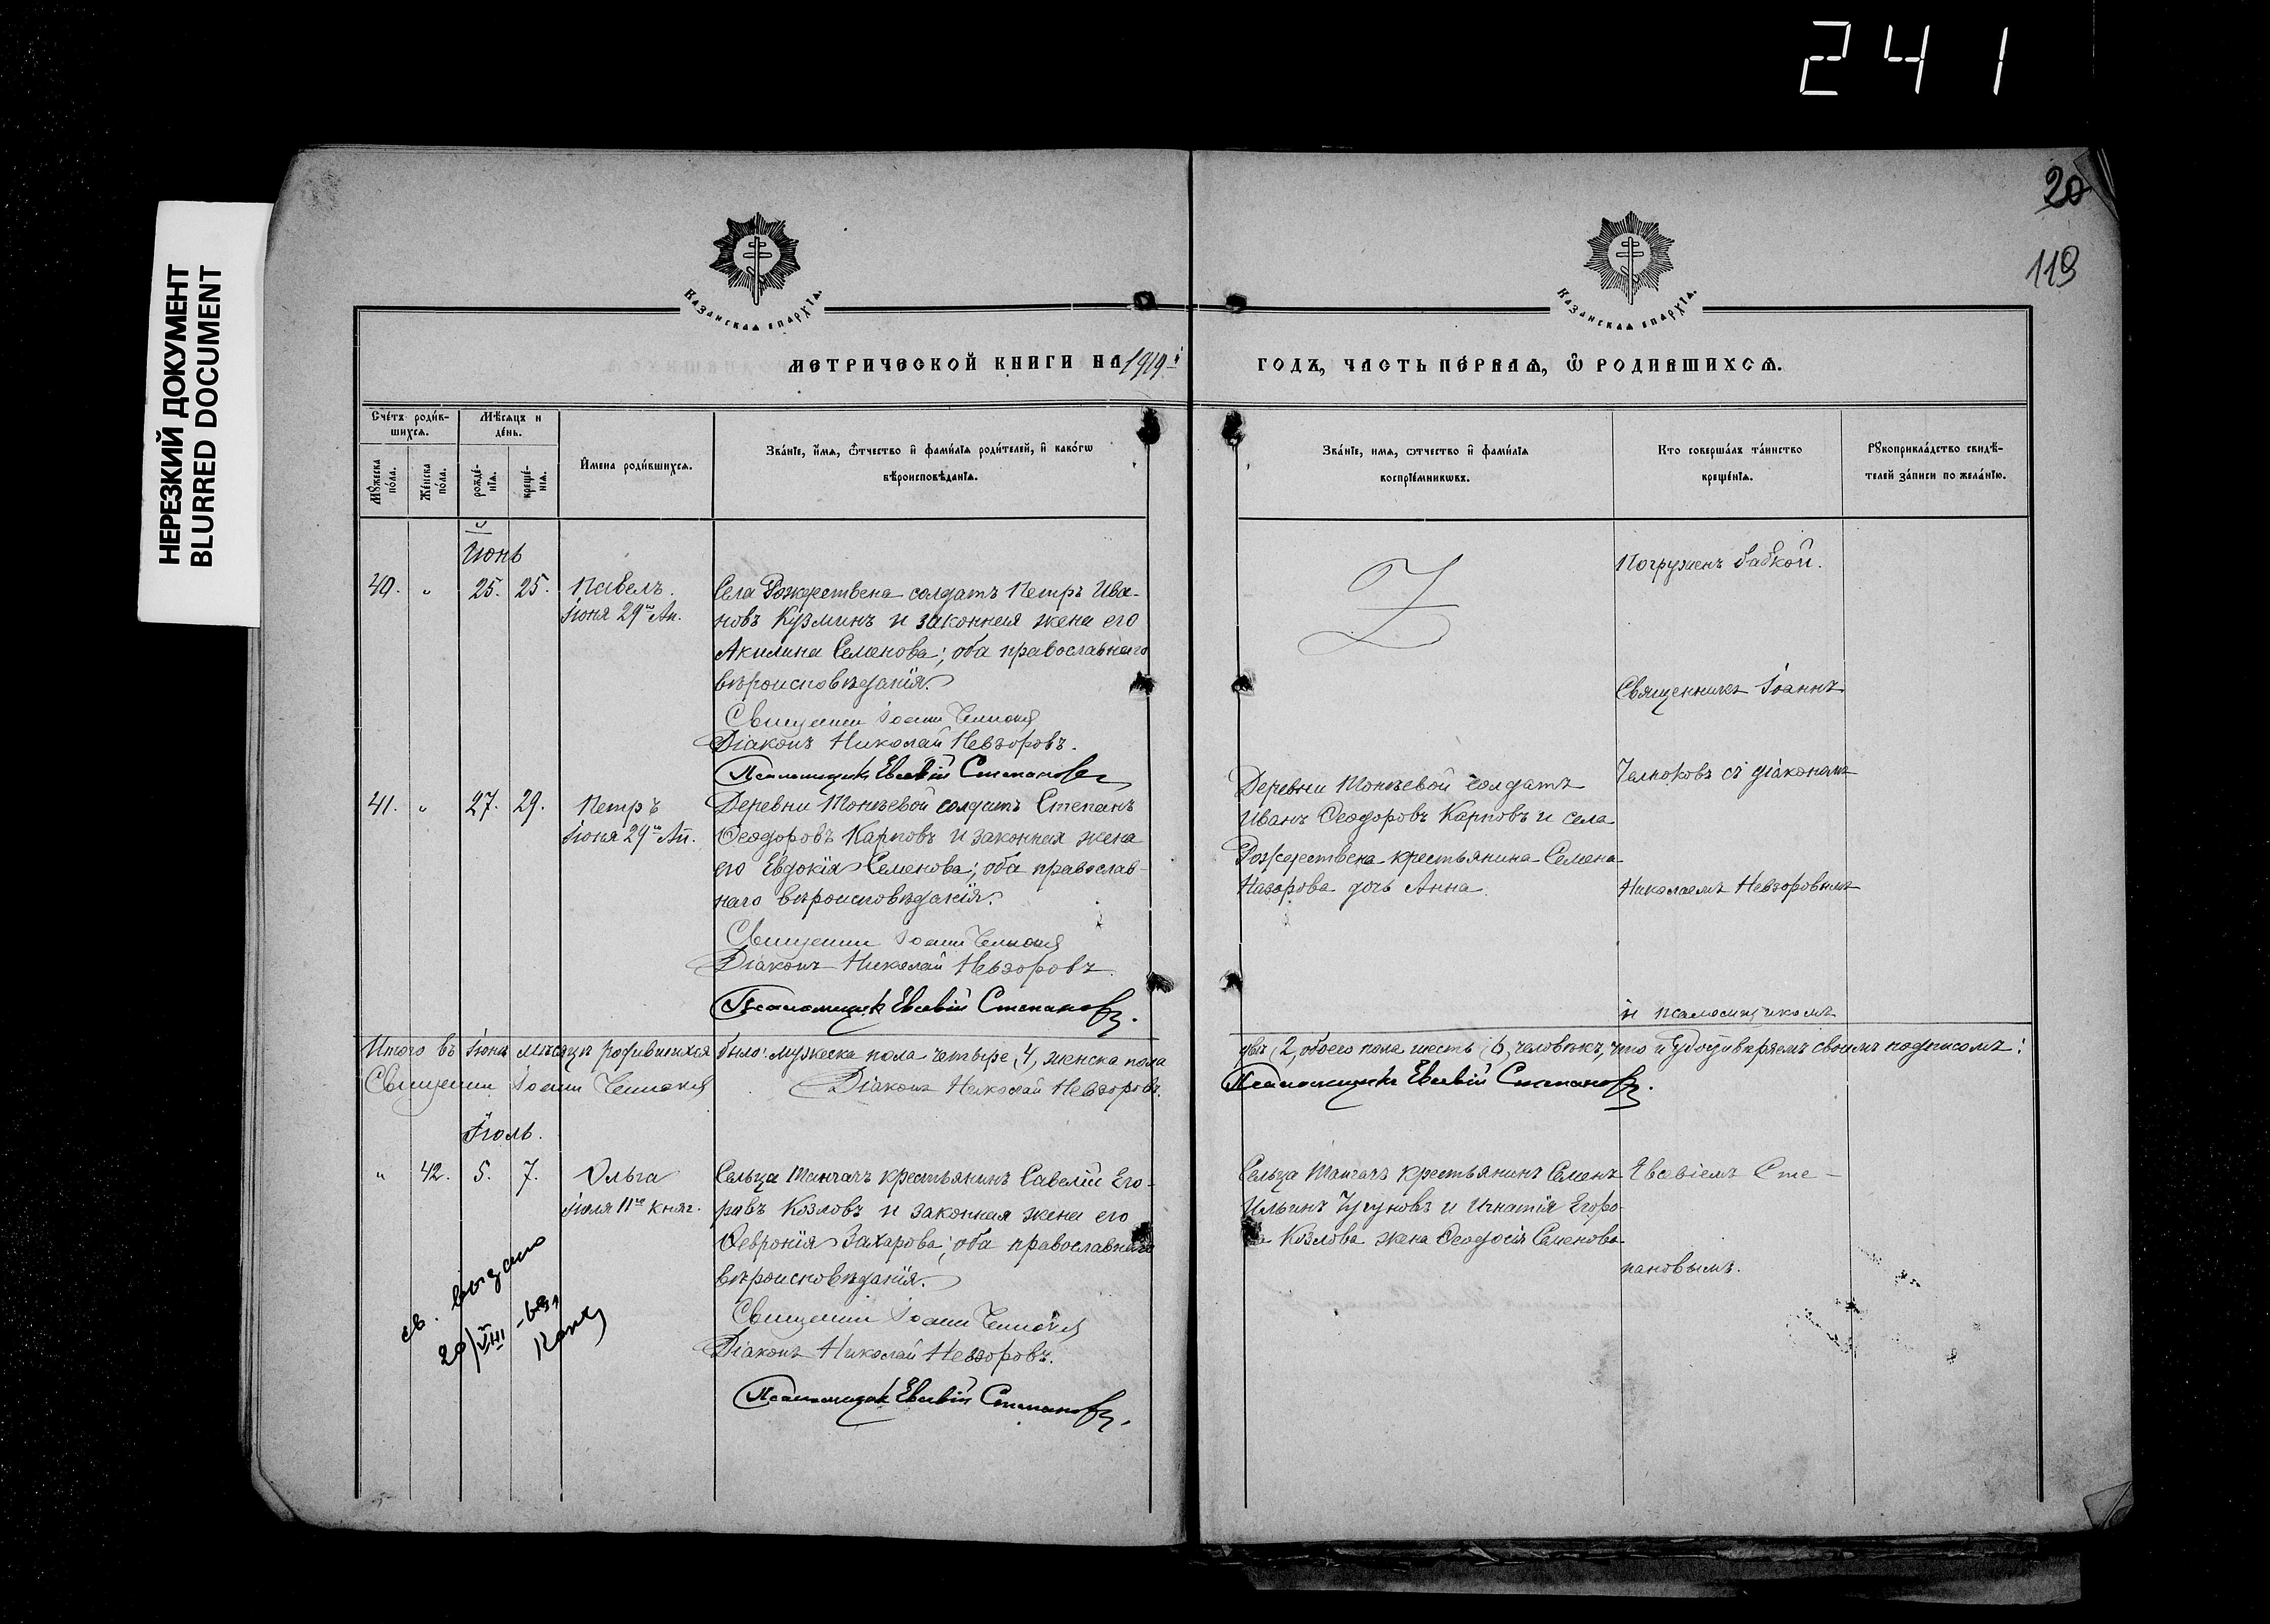 241
НЕРЕЗКИЙ ДОКУМЕНТ
BLURRED DOCUMENT
20
119
Казанская епархїя.
Казанская епархїя.
МЕТРИЧЕСКОЙ КНИГИ НА 1919 й
ГОДЪ, ЧАСТЬ ПЕ́РВАЯ, Ѽ РОДИВШИХСЯ.
Сче́тъ роди́в-
шихся.
Мѣ́сяцъ и
де́нь.
Мꙋ́жеска
по́ла.
Же́нска
по́ла.
рожде́-
нїя.
креще́-
нїя.
И́мена роди́вшихся.
Зва́нїе, и́мя, ѻ́тчество и҆ фами́лїя роди́телей, и҆ како́гѡ
вѣроисповѣ́данїя.
Зва́нїе, имя, ѻтчество и҆ фами́лїя
воспрїе́мникѡвъ.
Кто соверша́лъ та́инство
креще́нїя.
Рꙋкоприкла́дство свидѣ́-
телей за́писи по жела́нїю.
Июнь
40. " 25. 25. Павелъ.
Іюня 29го Ап.
Села Рождествена солдатъ Петръ Ива-
новъ Кузминъ и законная жена его
Акилина Семенова; оба православнаго
вѣроисповѣданія.
Священникъ Іоаннъ
Діаконъ Николай Невзоровъ.
Псаломщикъ Евсевій Степановъ
Погруженъ бабкой.
Священникъ Іоаннъ
41. " 27. 29. Петръ
Іюня 29го Ап.
Деревни Монъевой солдатъ Степанъ
Ѳеодоровъ Карповъ и законная жена
его Евдокія Семенова; оба православ-
наго вѣроисповѣданія.
Священникъ Іоаннъ
Діаконъ Николай Невзоровъ.
Псаломщикъ Евсевій Степановъ.
Деревни Монъевой солдатъ
Иванъ Ѳеодоровъ Карповъ и села
Рождествена крестьянина Семена
Назарова дочь Анна
съ діакономъ
Николаемъ Невзоровымъ
и псаломщикомъ
Итого въ Іюнѣ мѣсяцѣ родившихся было: мужеска пола четыре, 4, женска пола
двѣ, 2, обоего пола шесть, 6, человѣкъ, что и удостовѣряемъ своимъ подписомъ:
Священникъ Іоаннъ
Діаконъ Николай Невзоровъ.
Псаломщикъ Евсевій Степановъ.
Іюль.
" 42. 5. 7. Ольга
Іюля 11го княг.
Сельца Танчачъ крестьянинъ Савелій Его-
ровъ Козловъ и законная жена его
Ѳевронія Захарова; оба православнаго
вѣроисповѣданія.
Священникъ Іоаннъ
Діаконъ Николай Невзоровъ.
Псаломщикъ Евсевій Степановъ.
Сельца Танчачъ крестьянинъ Семенъ
Ильинъ Чугуновъ и Игнатія Егоро-
ва Козлова жена Ѳеодосія Семенова
Евсевіемъ Сте-
пановымъ.
св. выдано
20/VIII